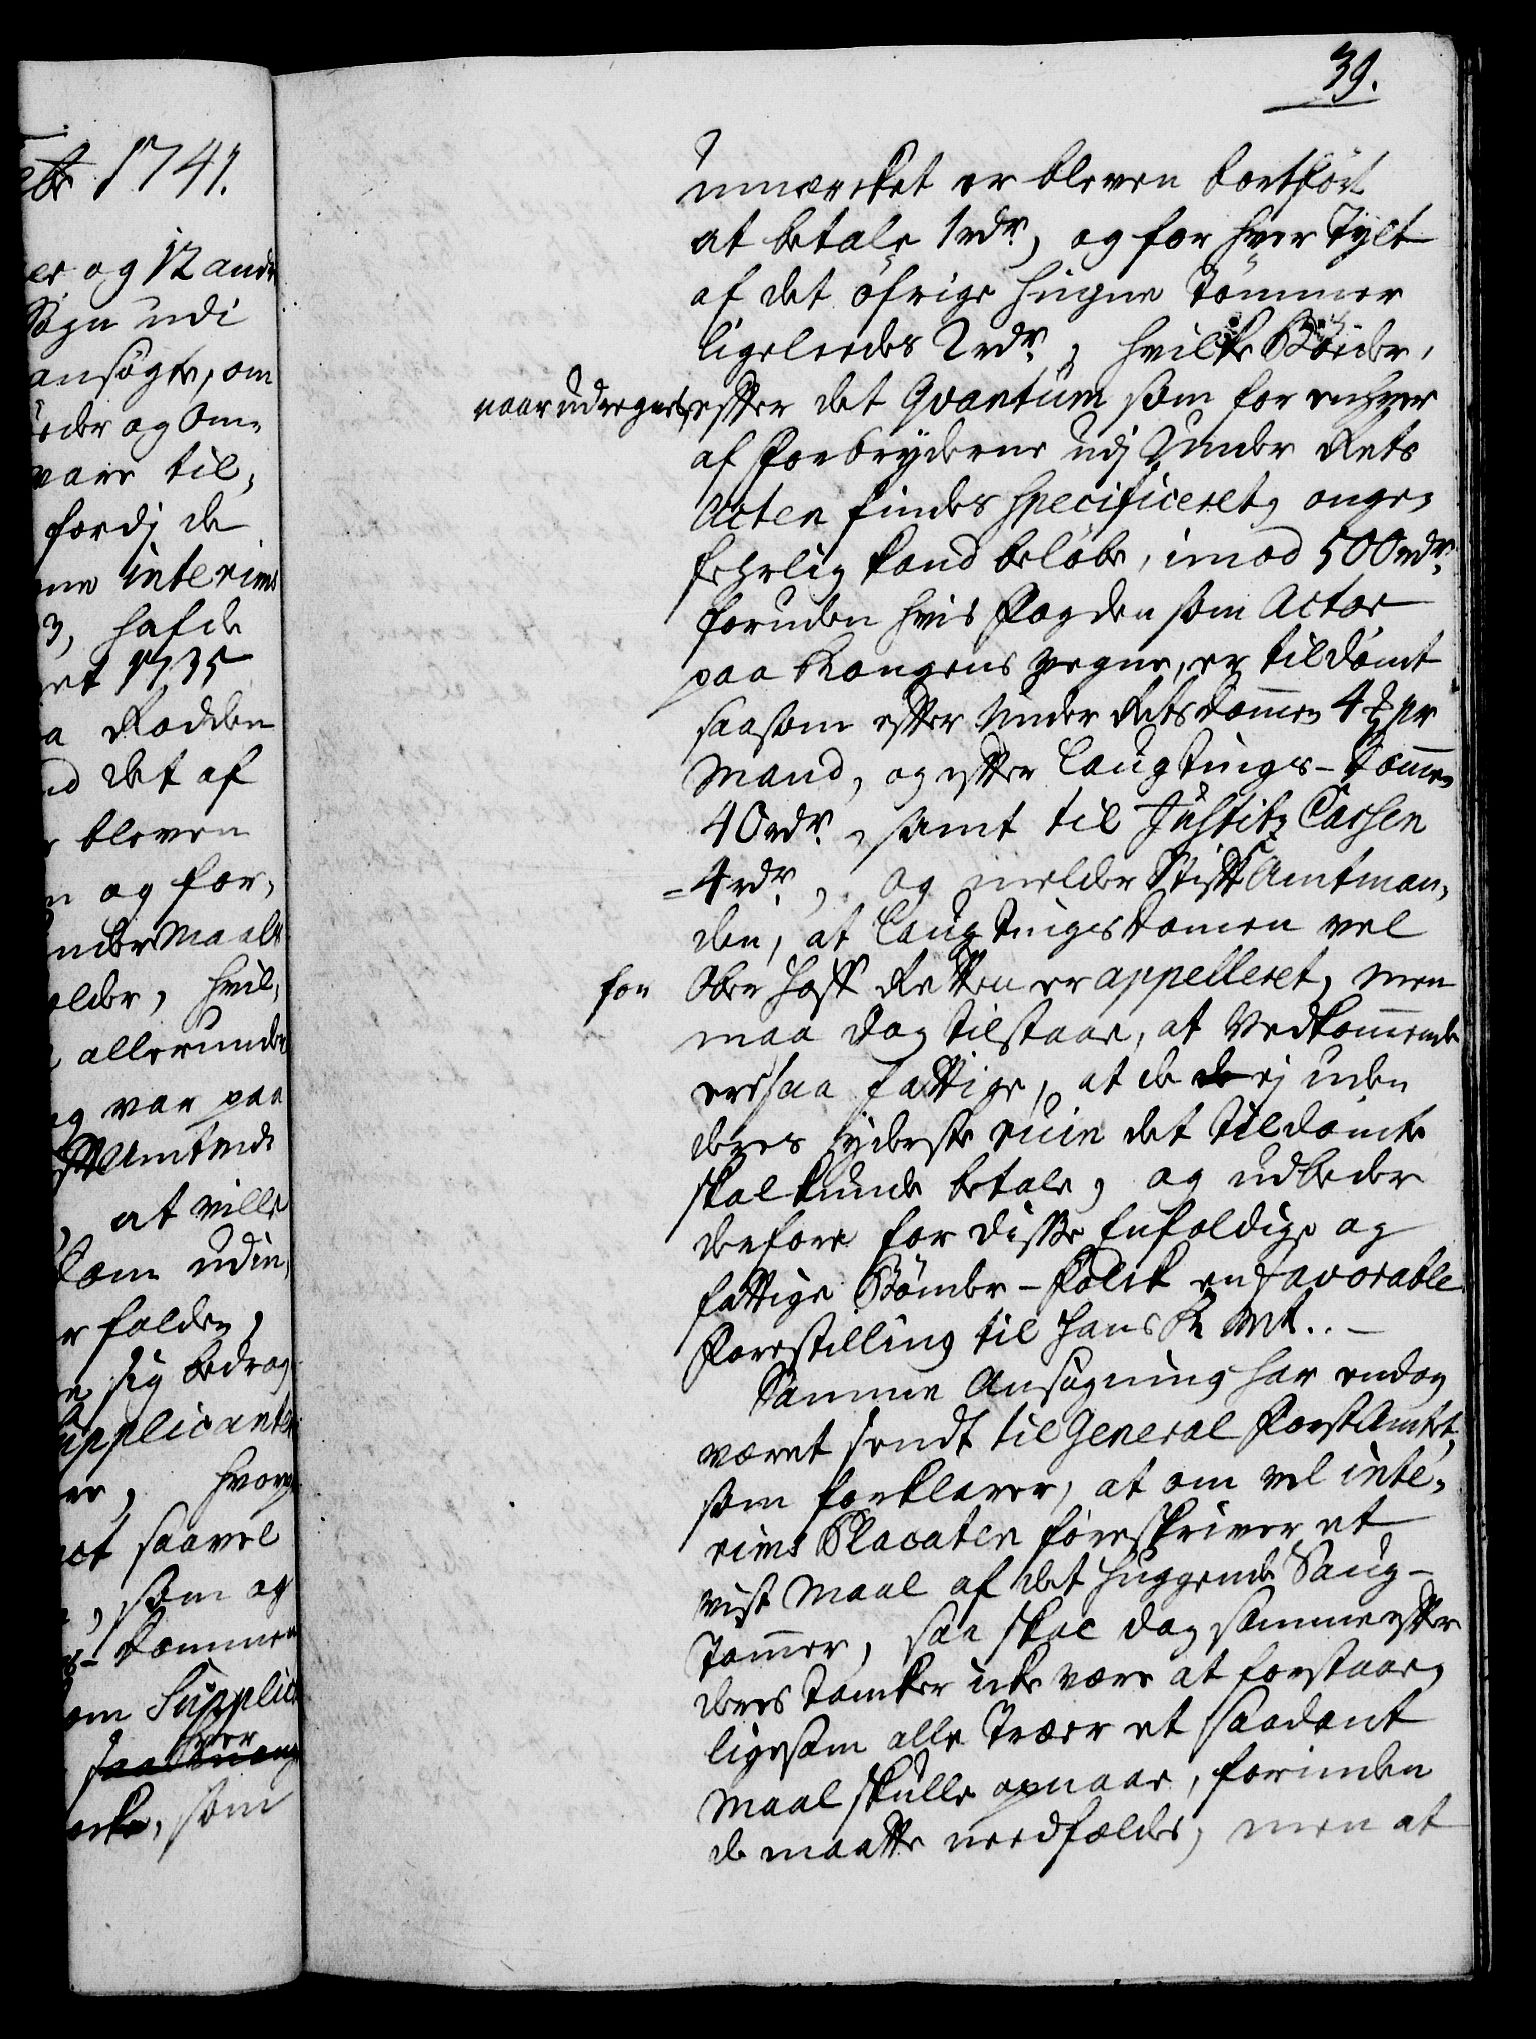 39.
umærcket er bleven bortfört
at betale 1 rdr, og for hver Tylt
af det öfrige hugne Tömmer
ligeledes 2 rdr, hvilke Böder,
naar udregnes efter det Qvantum som for enhver
af Forbryderne udj Under Rets
Acten findes specificeret, onge-
fehrlig kand belöbe, imod 500 rdr.
foruden hvis Fogden som Actor
paa Kongens vegne, er tildömt
saasom efter Under Rets Dommen 4 pr
Mand, og efter Laugtings-Dommen
40 rdr, samt til Justitz Cassen
4 rdr, og melder StiftAmtman-
den, at Laugtings Domen vel
for Ober Hoff Retten er appelleret, men
maa dog tilstaae, at Vedkommende
ere saa fattige, at de ej uden
deres yderste ruin det tildömte
skal kunde betale, og udbeder
derfore for disse Enfoldige og
fattige Bönder-Folck en favorable
Forestilling til Hans K. Mt..-
Samme Ansögning har endog
været sendt til General ForstAmtet,
som forklarer, at om vel inte-
rims Placaten föreskriver et
vist Maal af det huggende Saug-
Tömmer, saa skal dog samme efter
deres Tancker icke være at forstaae,
ligesom alle Træer et saadant
Maal skulle opnaae, forinden
de maatte needfældes, men at
1741.
og 12 andre
Sogn udi
ansögte, om
eder og om-
vare til-
fordj de
interims
3, hafde
et 1735
a Rodden
det af
bleven
og for-
under Maals
older, hvil-
allerunder
var paa
Amtmd:
at ville
kom udin
falden,
sig bedrag
Supplicanter
, hvorg
saavel
, som og
Dommen
om Supplic
hver
som